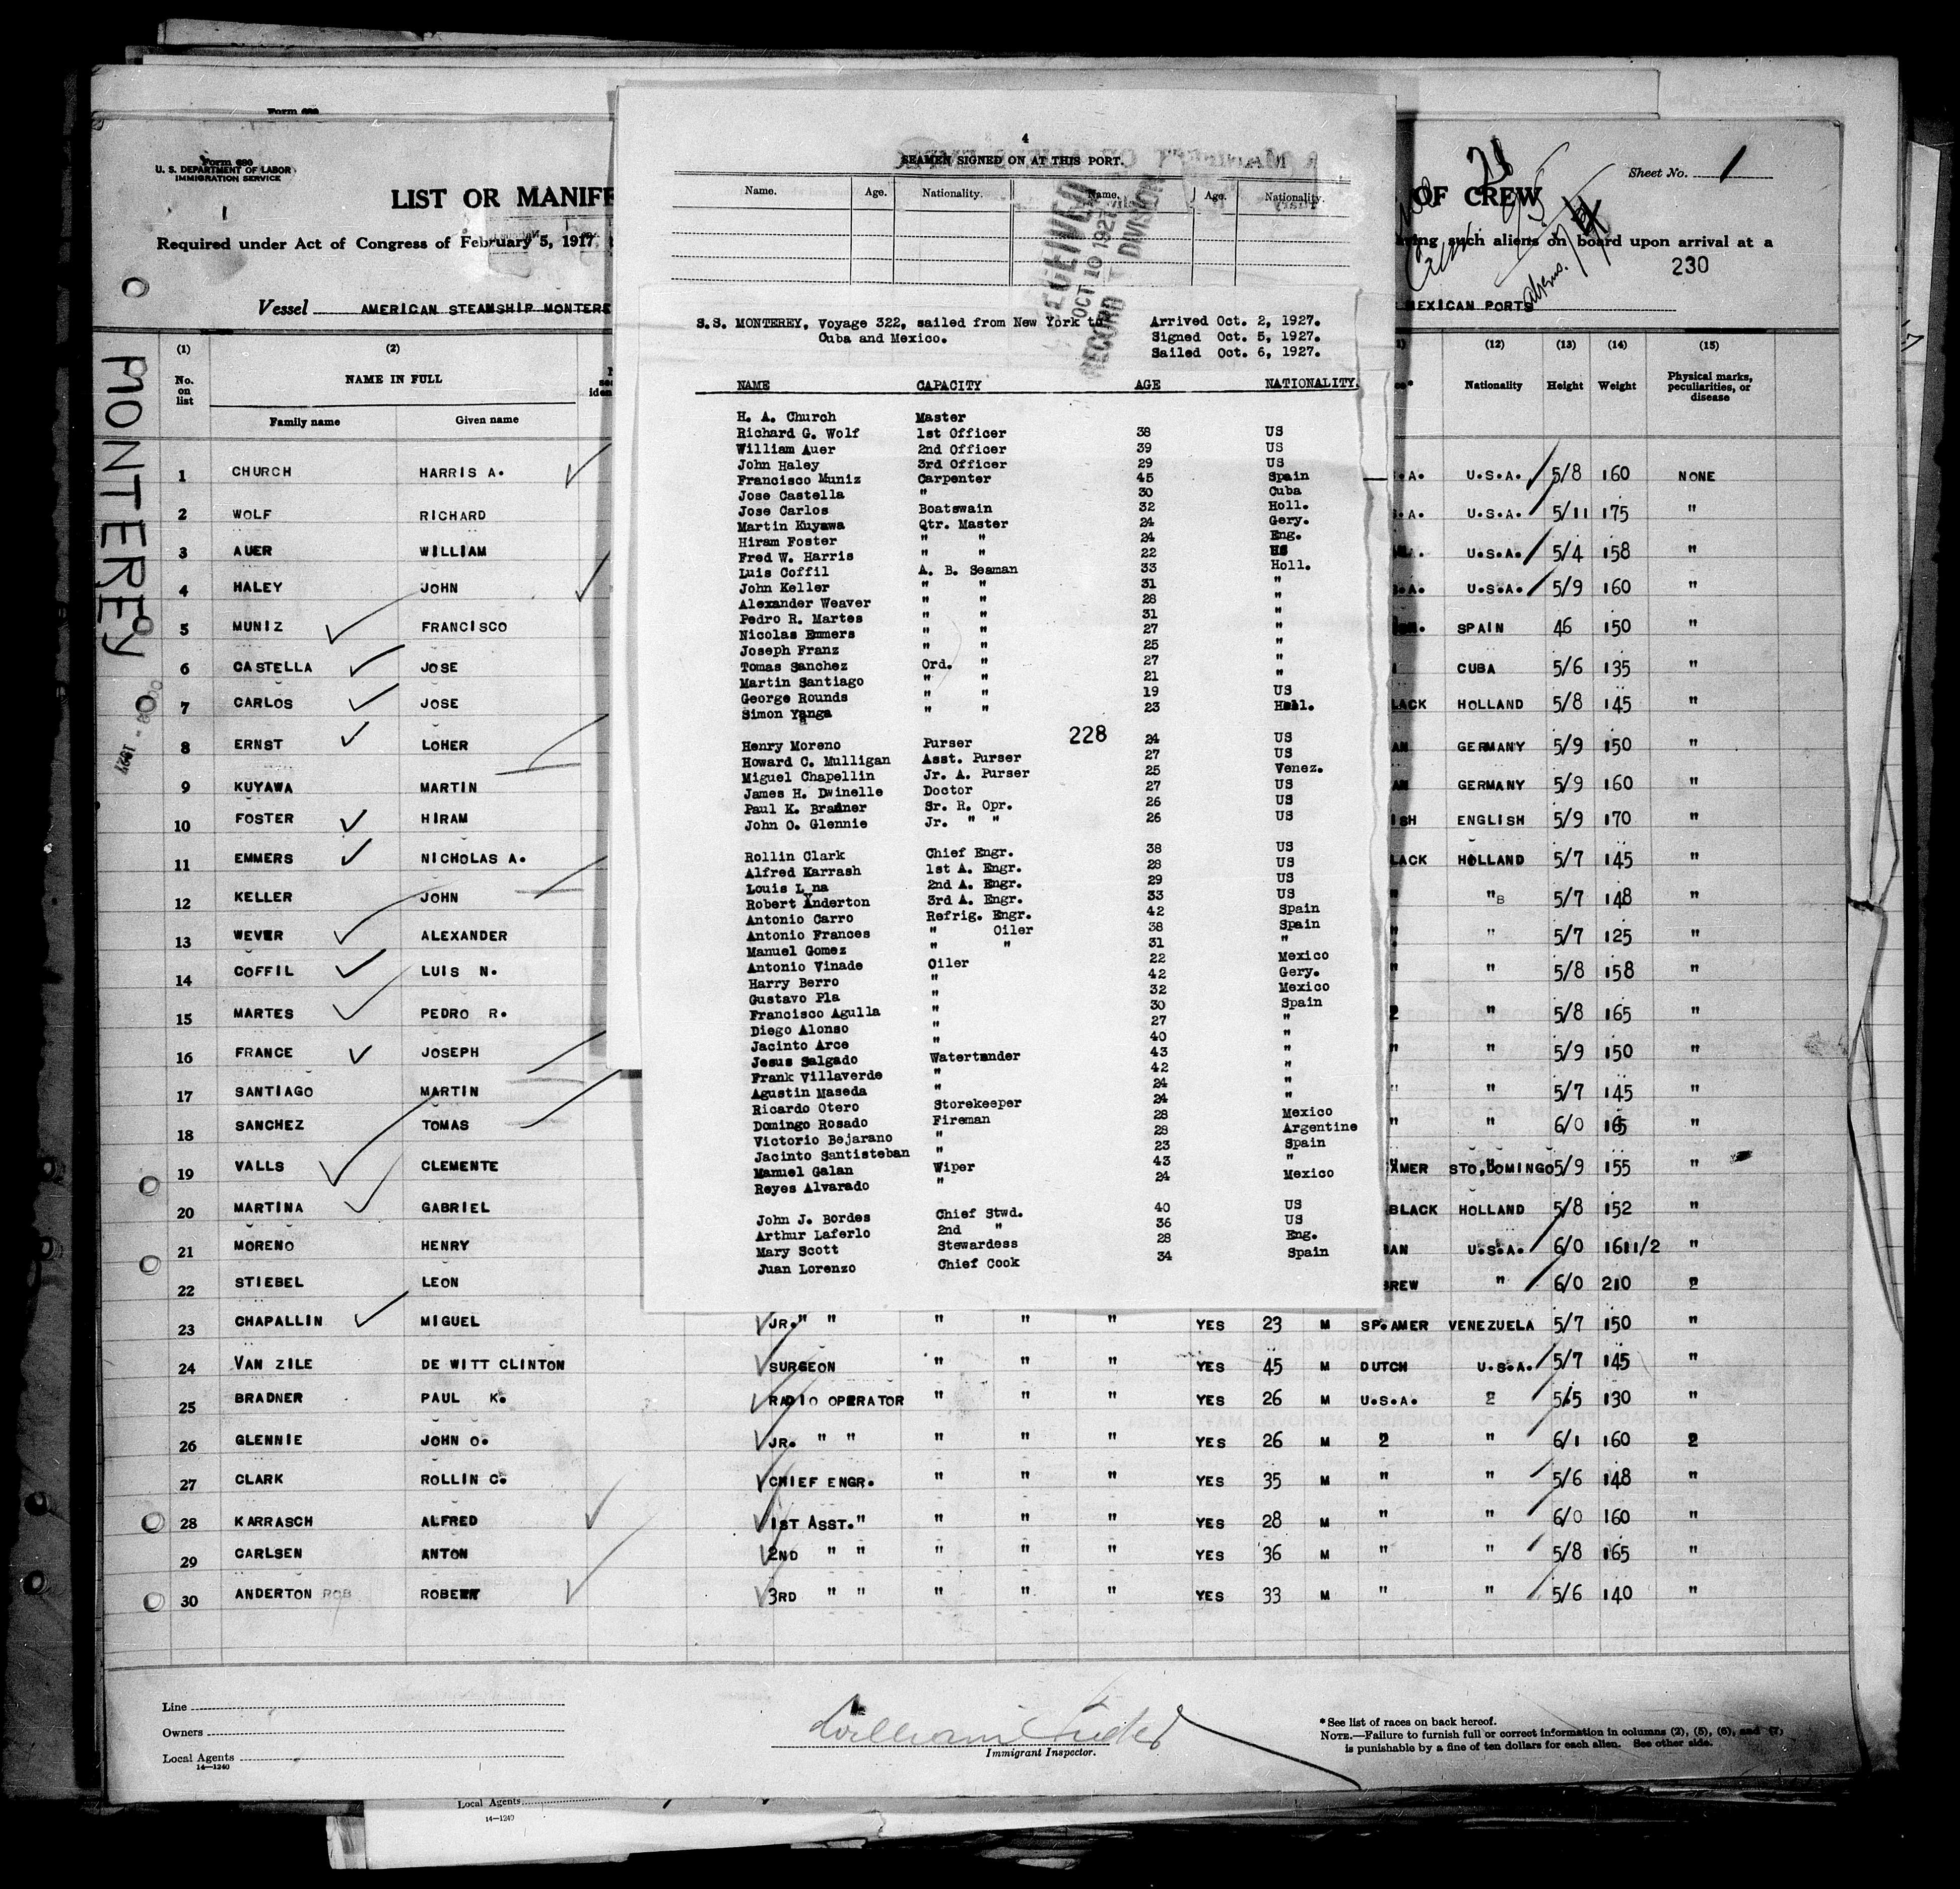 Form 680
Form 680
U. S. DEPARTMENT OF LABOR
IMMIGRATION SERVICE
LIST OR MANIFE
OF CREW
Sheet No. 1
Required under Act of Congress of February 5, 1917,
such aliens on board upon arrival at a
230
Vessel AMERICAN STEAMSHIP MONTERE
MEXICAN PORTS
MONTEREY
4
SEAMEN SIGNED ON AT THIS PORT.
Name. Age. Nationality. Name. Age. Nationality.
RECEIVED
OCT 10 1927
RECORD DIVISION
S.S. MONTEREY, Voyage 322, sailed from New York to Arrived Oct. 2, 1927.
Cuba and Mexico. Signed Oct. 5, 1927.
Sailed Oct. 6, 1927.
NAME CAPACITY AGE NATIONALITY.
H. A. Church Master
Richard G. Wolf 1st Officer 38 US
William Auer 2nd Officer 39 US
John Haley 3rd Officer 29 US
Francisco Muniz Carpenter 45 Spain
Jose Castella " 30 Cuba
Jose Carlos Boatswain 32 Holl.
Martin Kuyawa Qtr. Master 24 Gery.
Hiram Foster " " 24 Eng.
Fred W. Harris " " 22 US
Luis Coffil A. B. Seaman 33 Holl.
John Keller " " 31 "
Alexander Weaver " " 28 "
Pedro R. Martes " " 31 "
Nicolas Emmers " " 27 "
Joseph Franz " " 25 "
Tomas Sanchez Ord. " 27 "
Martin Santiago " " 21 "
George Rounds " " 19 US
Simon Yanga " " 23 Holl.
228
Henry Moreno Purser 24 US
Howard C. Mulligan Asst. Purser 27 US
Miguel Chapellin Jr. A. Purser 25 Venez.
James H. Dwinelle Doctor 27 US
Paul K. Bradner Sr. R. Opr. 26 US
John O. Glennie Jr. " " 26 US
Rollin Clark Chief Engr. 38 US
Alfred Karrash 1st A. Engr. 28 US
Louis L na 2nd A. Engr. 29 US
Robert Anderton 3rd A. Engr. 33 US
Antonio Carro Refrig. Engr. 42 Spain
Antonio Frances " Oiler 38 Spain
Manuel Gomez " " 31 "
Antonio Vinade Oiler 22 Mexico
Harry Berro " 42 Gery.
Gustavo Pla " 32 Mexico
Francisco Agulla " 30 Spain
Diego Alonso " 27 "
Jacinto Arce " 40 "
Jesus Salgado Watertender 43 "
Frank Villaverde " 42 "
Agustin Maseda " 24 "
Ricardo Otero Storekeeper 24 "
Domingo Rosado Fireman 28 Mexico
Victorio Bejarano " 28 Argentine
Jacinto Santisteban " 23 Spain
Manuel Galan Wiper 43 "
Reyes Alvarado " 24 Mexico
John J. Bordes Chief Stwd. 40 US
Arthur Laferlo 2nd " 36 US
Mary Scott Stewardess 28 Eng.
Juan Lorenzo Chief Cook 34 Spain
(1) (2) (12) (13) (14) (15)
No. on list NAME IN FULL Nationality Height Weight Physical marks, peculiarities, or disease
Family name Given name
1 CHURCH HARRIS A. U.S.A. 5/8 160 NONE
2 WOLF RICHARD U.S.A. 5/11 175 "
3 AUER WILLIAM U.S.A. 5/4 158 "
4 HALEY JOHN U.S.A. 5/9 160 "
5 MUNIZ FRANCISCO SPAIN 46 150 "
6 CASTELLA JOSE CUBA 5/6 135 "
7 CARLOS JOSE LACK HOLLAND 5/8 145 "
8 ERNST LOHER AN GERMANY 5/9 150 "
9 KUYAWA MARTIN AN GERMANY 5/9 160 "
10 FOSTER HIRAM ISH ENGLISH 5/9 170 "
11 EMMERS NICHOLAS A. LACK HOLLAND 5/7 145 "
12 KELLER JOHN " "B 5/7 148 "
13 WEVER ALEXANDER " " 5/7 125 "
14 COFFIL LUIS N. " " 5/8 158 "
15 MARTES PEDRO R. 2 " 5/8 165 "
16 FRANCE JOSEPH " " 5/9 150 "
17 SANTIAGO MARTIN " " 5/7 145 "
18 SANCHEZ TOMAS " " 6/0 165 "
19 VALLS CLEMENTE AMER STO,DOMINGO 5/9 155 "
20 MARTINA GABRIEL BLACK HOLLAND 5/8 152 "
21 MORENO HENRY AN U.S.A. 6/0 161 1/2 "
22 STIEBEL LEON REW " 6/0 210 2
23 CHAPALLIN MIGUEL JR. " " " " " YES 23 M SP.AMER VENEZUELA 5/7 150 "
24 VAN ZILE DE WITT CLINTON SURGEON " " " YES 45 M DUTCH U.S.A. 5/7 145 "
25 BRADNER PAUL K. RADIO OPERATOR " " " YES 26 M U.S.A. 2 5/5 130 "
26 GLENNIE JOHN O. JR. " " " " " YES 26 M 2 " 6/1 160 2
27 CLARK ROLLIN C. CHIEF ENGR. " " " YES 35 M " " 5/6 148 "
28 KARRASCH ALFRED 1ST ASST." " " " YES 28 M " " 6/0 160 "
29 CARLSEN ANTON 2ND " " " " " YES 36 M " " 5/8 165 "
30 ANDERTON ROB ROBERT 3RD " " " " " YES 33 M " " 5/6 140 "
Line
Owners
Local Agents
14—1240
William
Immigrant Inspector.
* See list of races on back hereof.
NOTE.—Failure to furnish full or correct information in columns (2), (5), (6), and (7)
is punishable by a fine of ten dollars for each alien. See other side.
Local Agents
14—1240